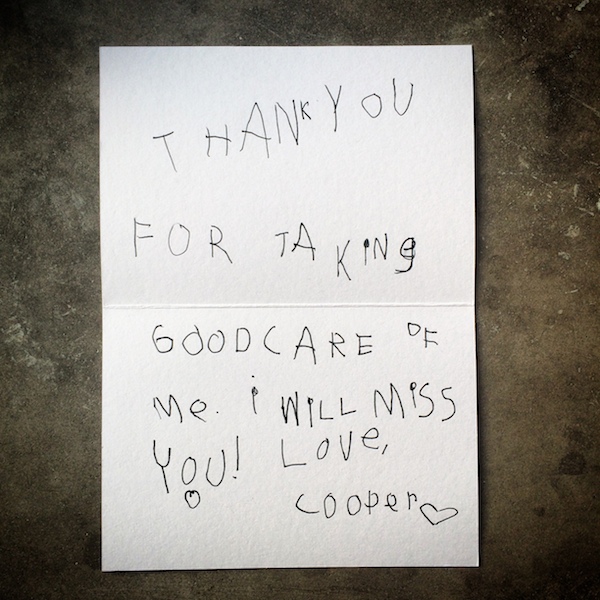 THANKYOU
FOR TAKING
GOODCARE OF
Me. i WiLL MiSS
YOU! LOVe,
Cooper